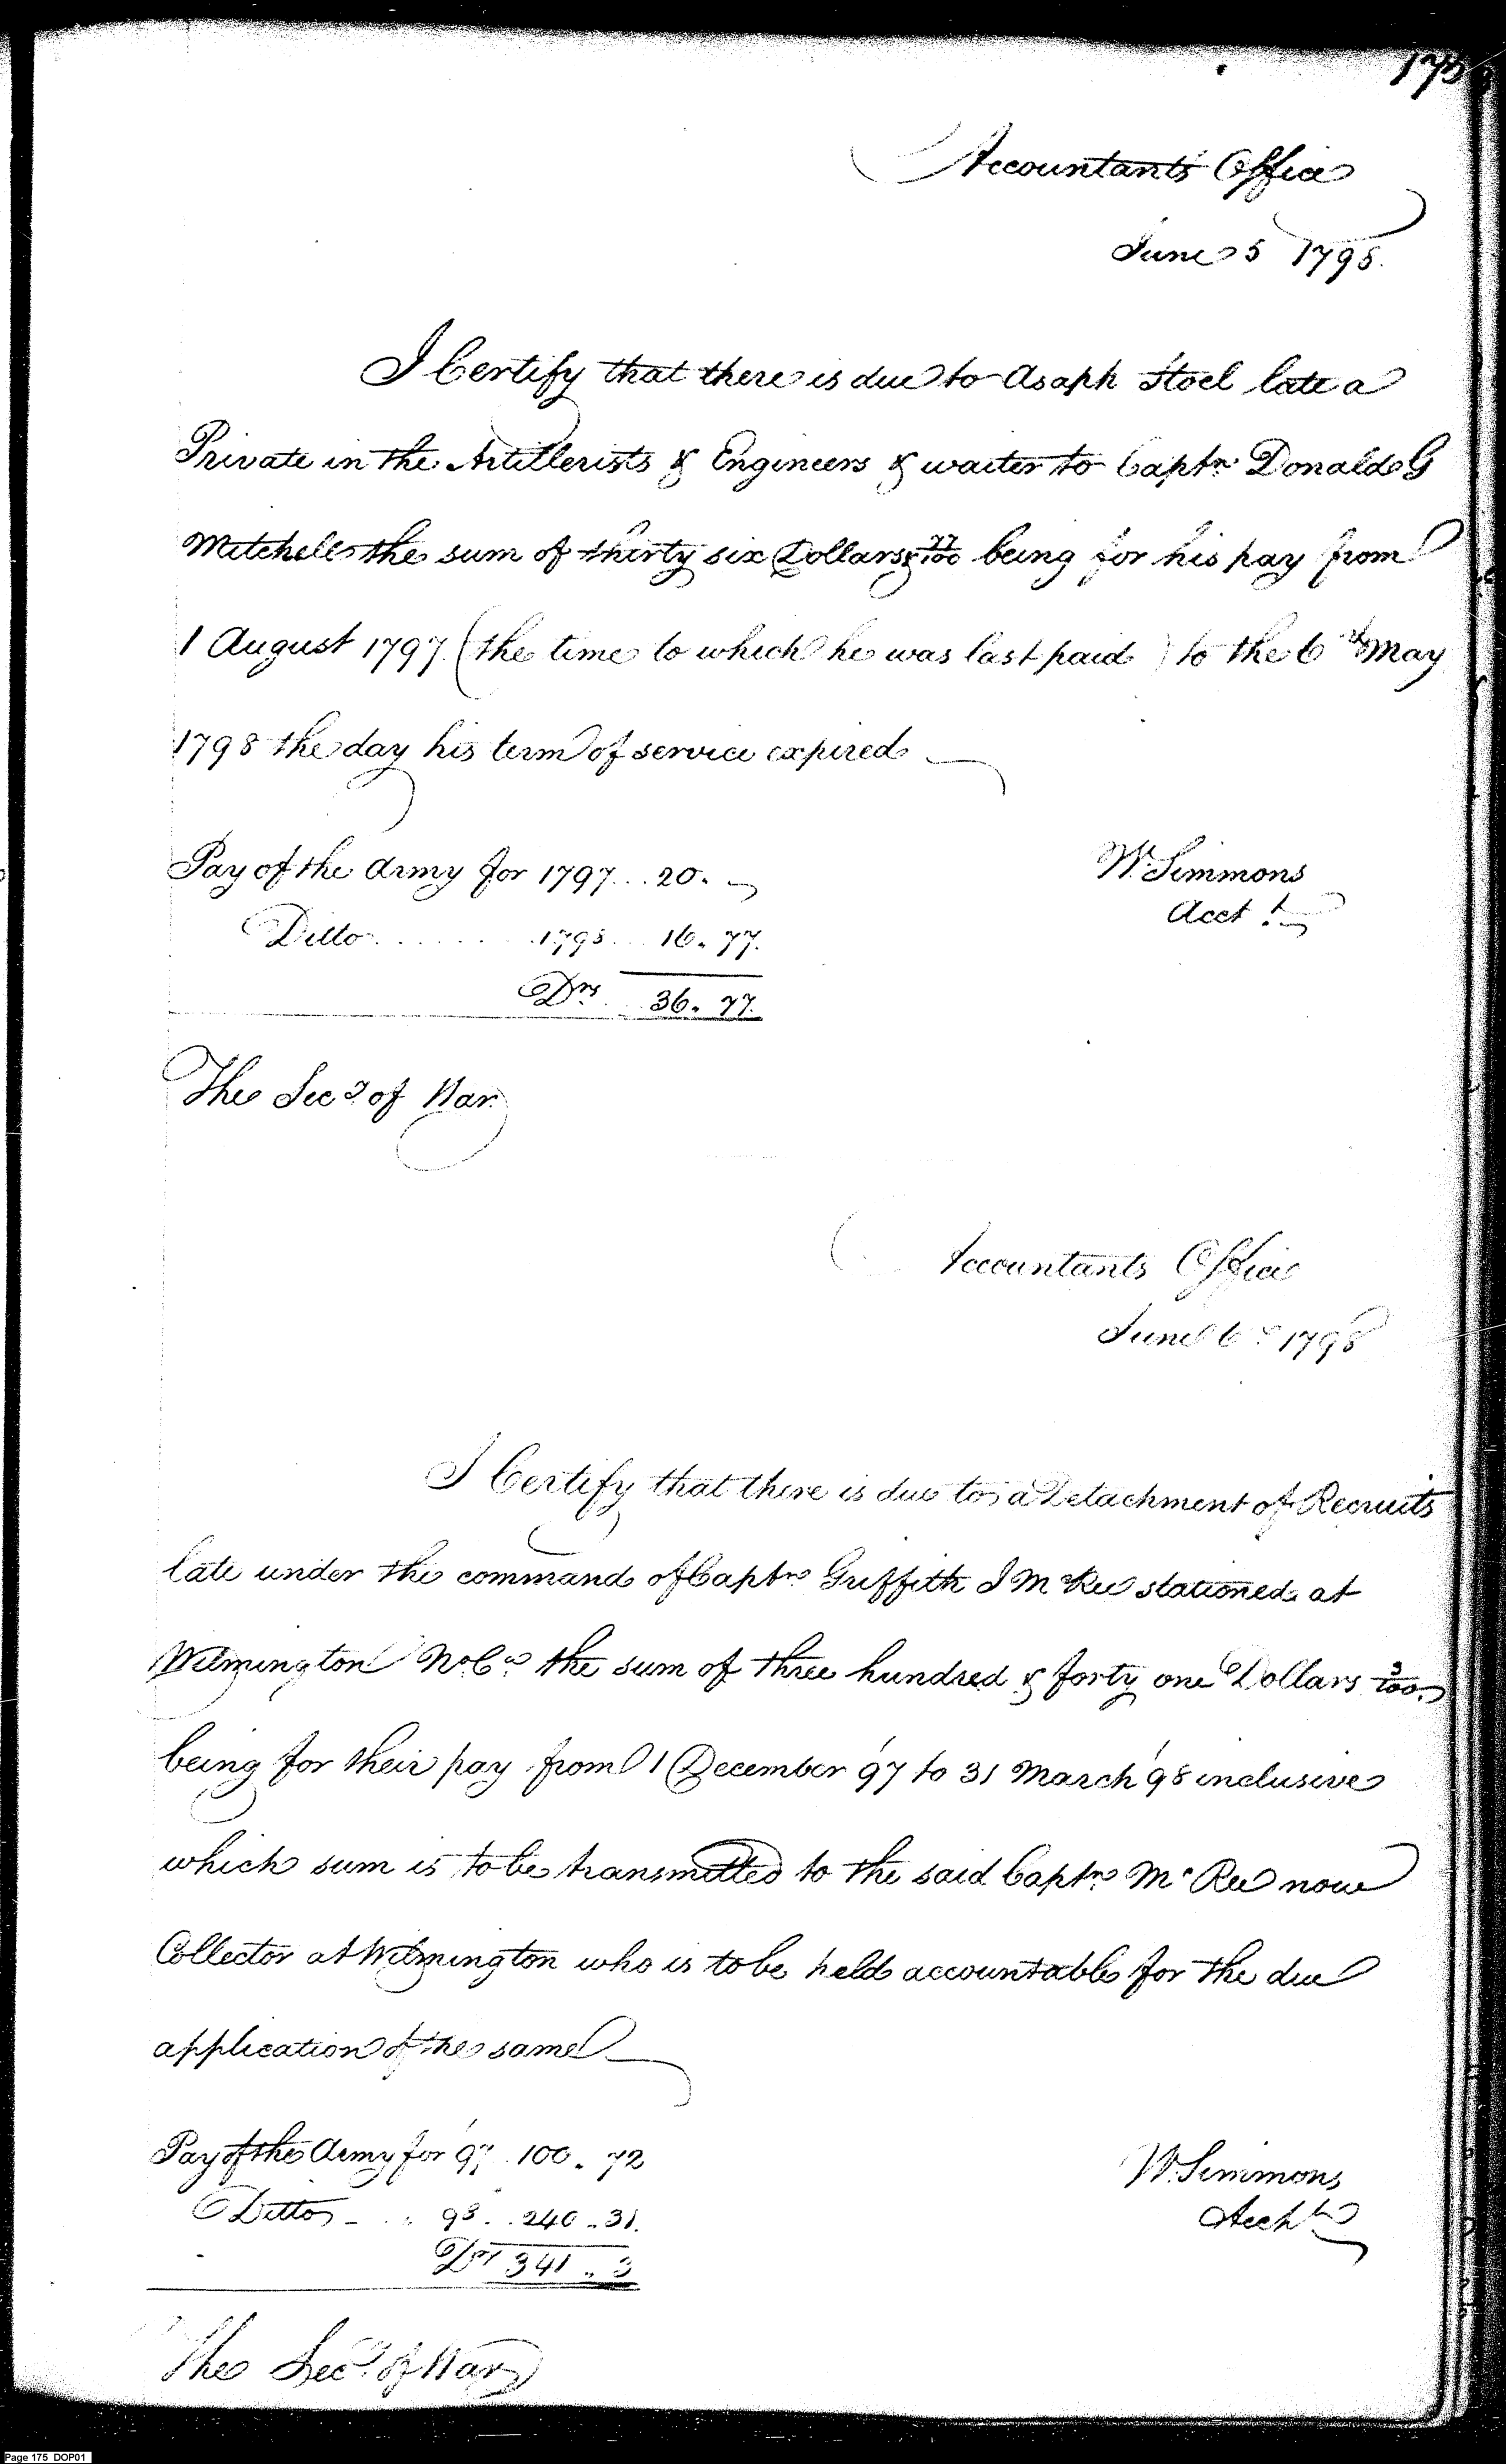 175
Accountants Office
June 5 1798.
I Certify that there is due to Asaph Stoel late a
Private in the Artillerists & Engineers & waiter to Captn. Donald G
Mitchell the sum of thirty six Dollars & 77/100 being for his pay from
1 August 1797 (the time to which he was last paid) to the 6th May
1798 the day his term of service expired
Pay of the Army for 1797... 20. -
W. Simmons
Acct.
Ditto ........ 1798.... 16. 77.
Drs. ... 36. 77.
The Secy. of War.
Accountants Office
June 6th 1798
I Certify that there is due to a Detachment of Recruits
late under the command of Captn Griffith J McRee stationed at
Wilmington No Ca the sum of three hundred & forty one Dollars 3/100.
being for their pay from 1 December '97 to 31 March '98 inclusive
which sum is to be transmitted to the said Captn McRee now
Collector at Wilmington who is to be held accountable for the due
application of the same
Pay of the Army for '97. 100. 72
W. Simmons
Acct
Ditto - .. 98.. 240.. 31.
Drs 341.. 3
The Secy. of War
Page 175 DOP01